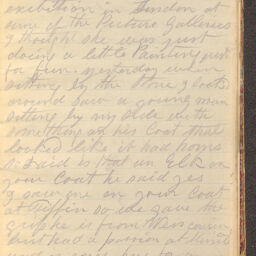 exibition in London at
one of the Picture Galleries
I thought she was just
doing a little Painting just
for fun. yesterday when
sitting by the Stove I looked
around saw a young man
sitting by my side with
something on his Coat that
looked like it had horns
so I said is that an Elk on
your Coat he said yes
I saw one on your Coat
at Tiffin so we gave the
grip he is from Wisconsin
and had a passion at